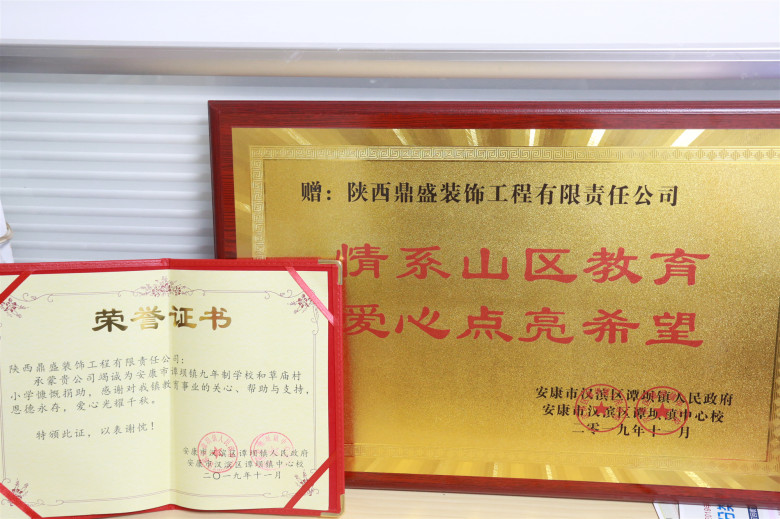 赠：陕西鼎盛装饰工程有限责任公司
情系山区教育
爱心点亮希望
安康市汉滨区谭坝镇人民政府
安康市汉滨区谭坝镇中心校
二〇一九年十一月
荣誉证书
陕西鼎盛装饰工程有限责任公司：
承蒙贵公司竭诚为安康市谭坝镇九年制学校和草庙村
小学慷慨捐助，感谢对我镇教育事业的关心、帮助与支持，
恩德永存，爱心光耀千秋。
特颁此证，以表谢忱！
安康市汉滨区谭坝镇人民政府
安康市汉滨区谭坝镇中心校
二〇一九年十一月